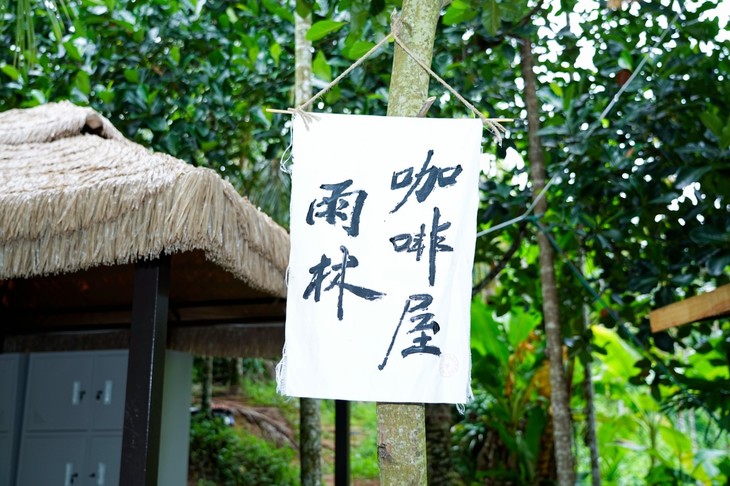 雨林
咖啡屋